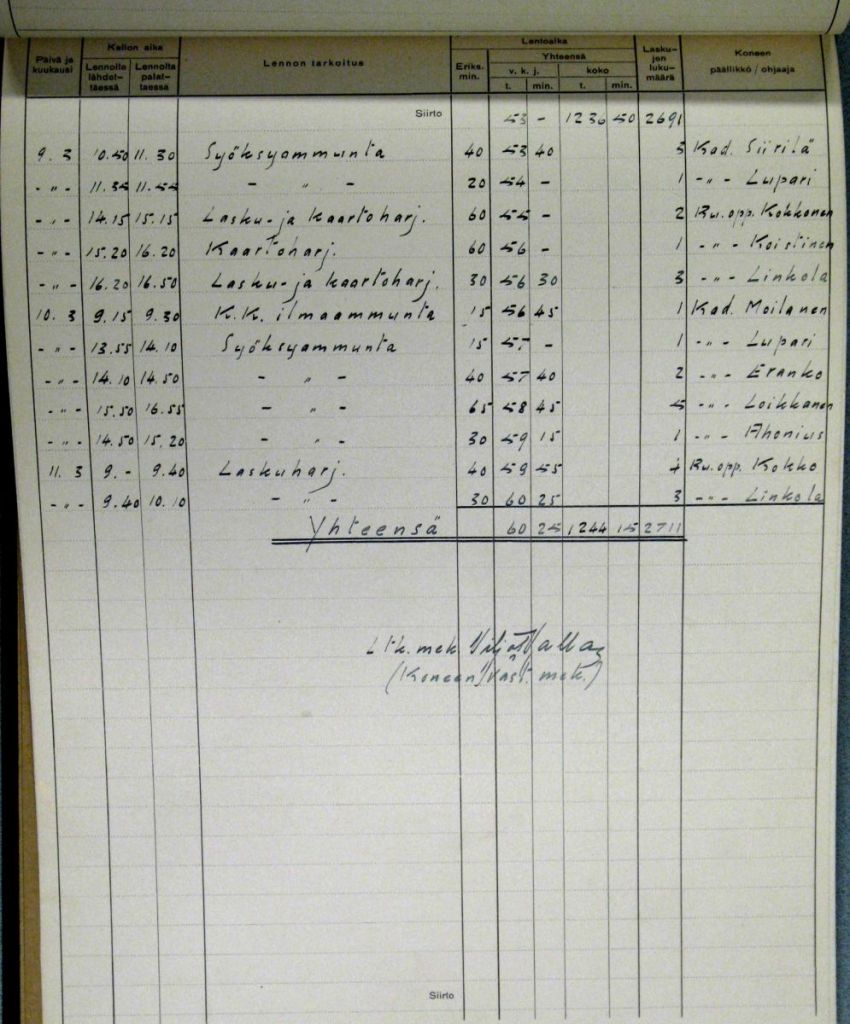 Päivä ja kuukausi | Kellon aika | Lennon tarkoitus | Lentoaika | Laskujen lukumäärä | Koneen päällikkö / ohjaaja
Lennolle lähdettäessä | Lennolta palattaessa | Eriks. min. | Yhteensä
v. k. j. | koko
t. | min. | t. | min.
Siirto 53 - 1236 50 2691
9. 3 10.50 11.30 Syöksyammunta 40 53 40 3 Kad. Siirilä
- " - 11.35 11.55 - " - 20 54 - 1 - " - Lupari
- " - 14.15 15.15 Lasku- ja kaartoharj. 60 55 - 2 Ru.opp. Kokkonen
- " - 15.20 16.20 Kaartoharj. 60 56 - 1 - " - Koistinen
- " - 16.20 16.50 Lasku- ja kaartoharj. 30 56 30 3 - " - Linkola
10. 3 9.15 9.30 K.K. ilmaammunta 15 56 45 1 Kad. Moilanen
- " - 13.55 14.10 Syöksyammunta 15 57 - 1 - " - Lupari
- " - 14.10 14.50 - " - 40 57 40 2 - " - Eranko
- " - 15.50 16.55 - " - 65 58 45 5 - " - Loikkanen
- " - 14.50 15.20 - " - 30 59 15 1 - " - Ahonius
11. 3 9.- 9.40 Laskuharj. 40 59 55 4 Ru.opp. Kokko
- " - 9.40 10.10 - " - 30 60 25 3 - " - Linkola
Yhteensä 60 25 1244 15 2711
Ltk. mek. Viljo
(Koneen vast. mek.)
Siirto